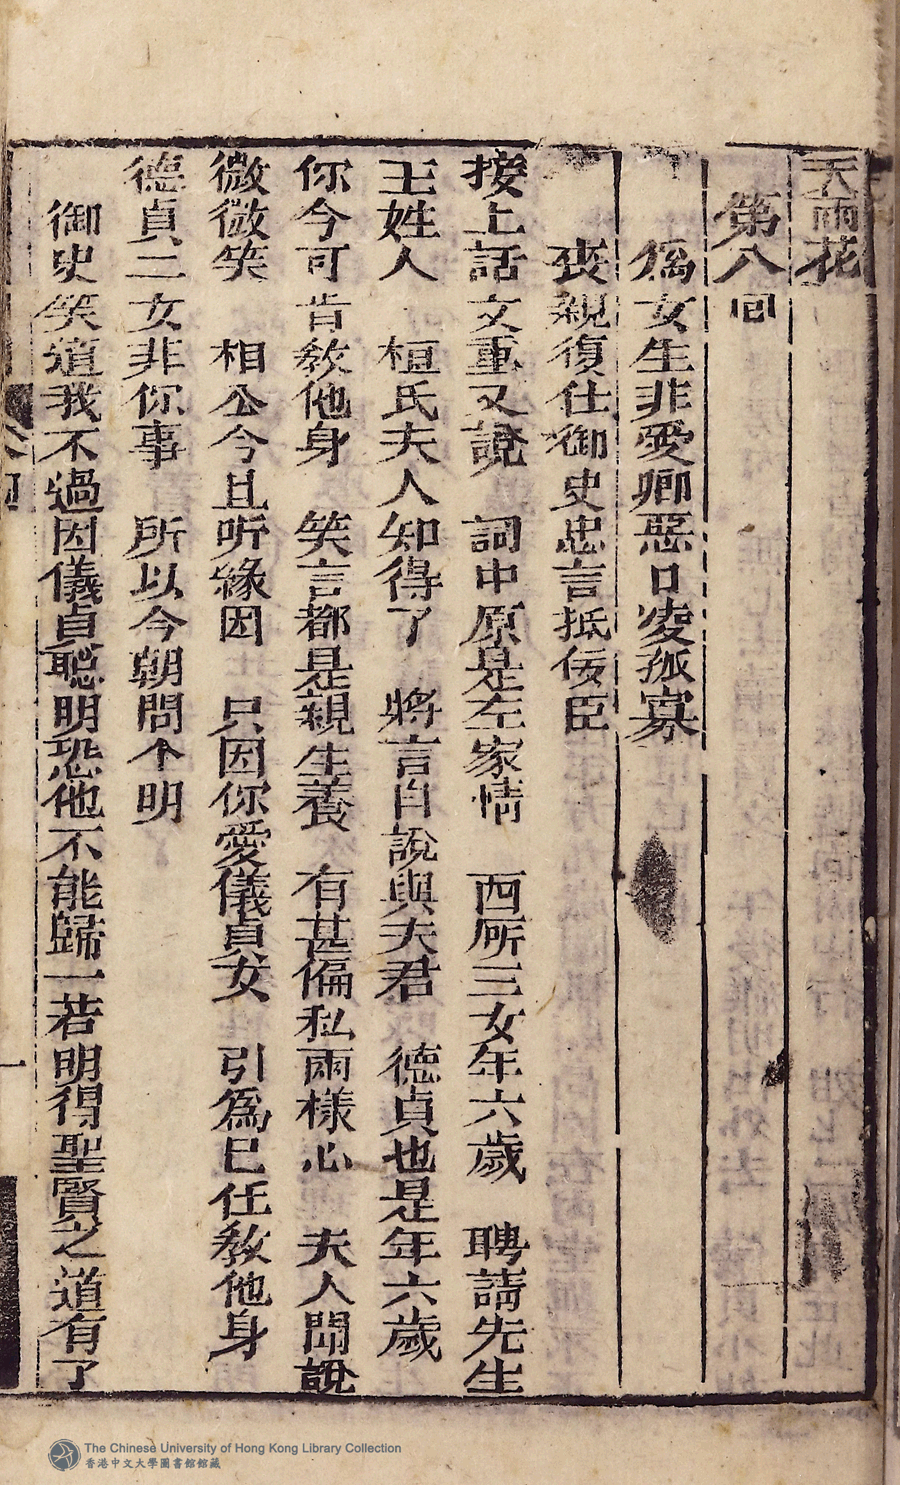 天雨花
第八囘
爲女生非愛卿惡口凌孤寡
喪親復仕御史忠言抵佞臣
接上話文重又說 詞中原是左家情 西𠩄三女年六歲 聘請先生
王姓人 桓氏夫人知得了 將言自說與夫君 德貞也是年六歲
你今可肯教他身 笑言都是親生養 有甚偏私兩樣心 夫人聞說
微微笑 相公今且听緣因 只因你愛儀貞女 引爲已任教他身
德貞二女非你事 所以今朝問个明
御史笑道我不過因儀貞聡明恐他不能歸一若明得聖賢之道有了
一
The Chinese University of Hong Kong Library Collection
香港中文大學圖書館館藏